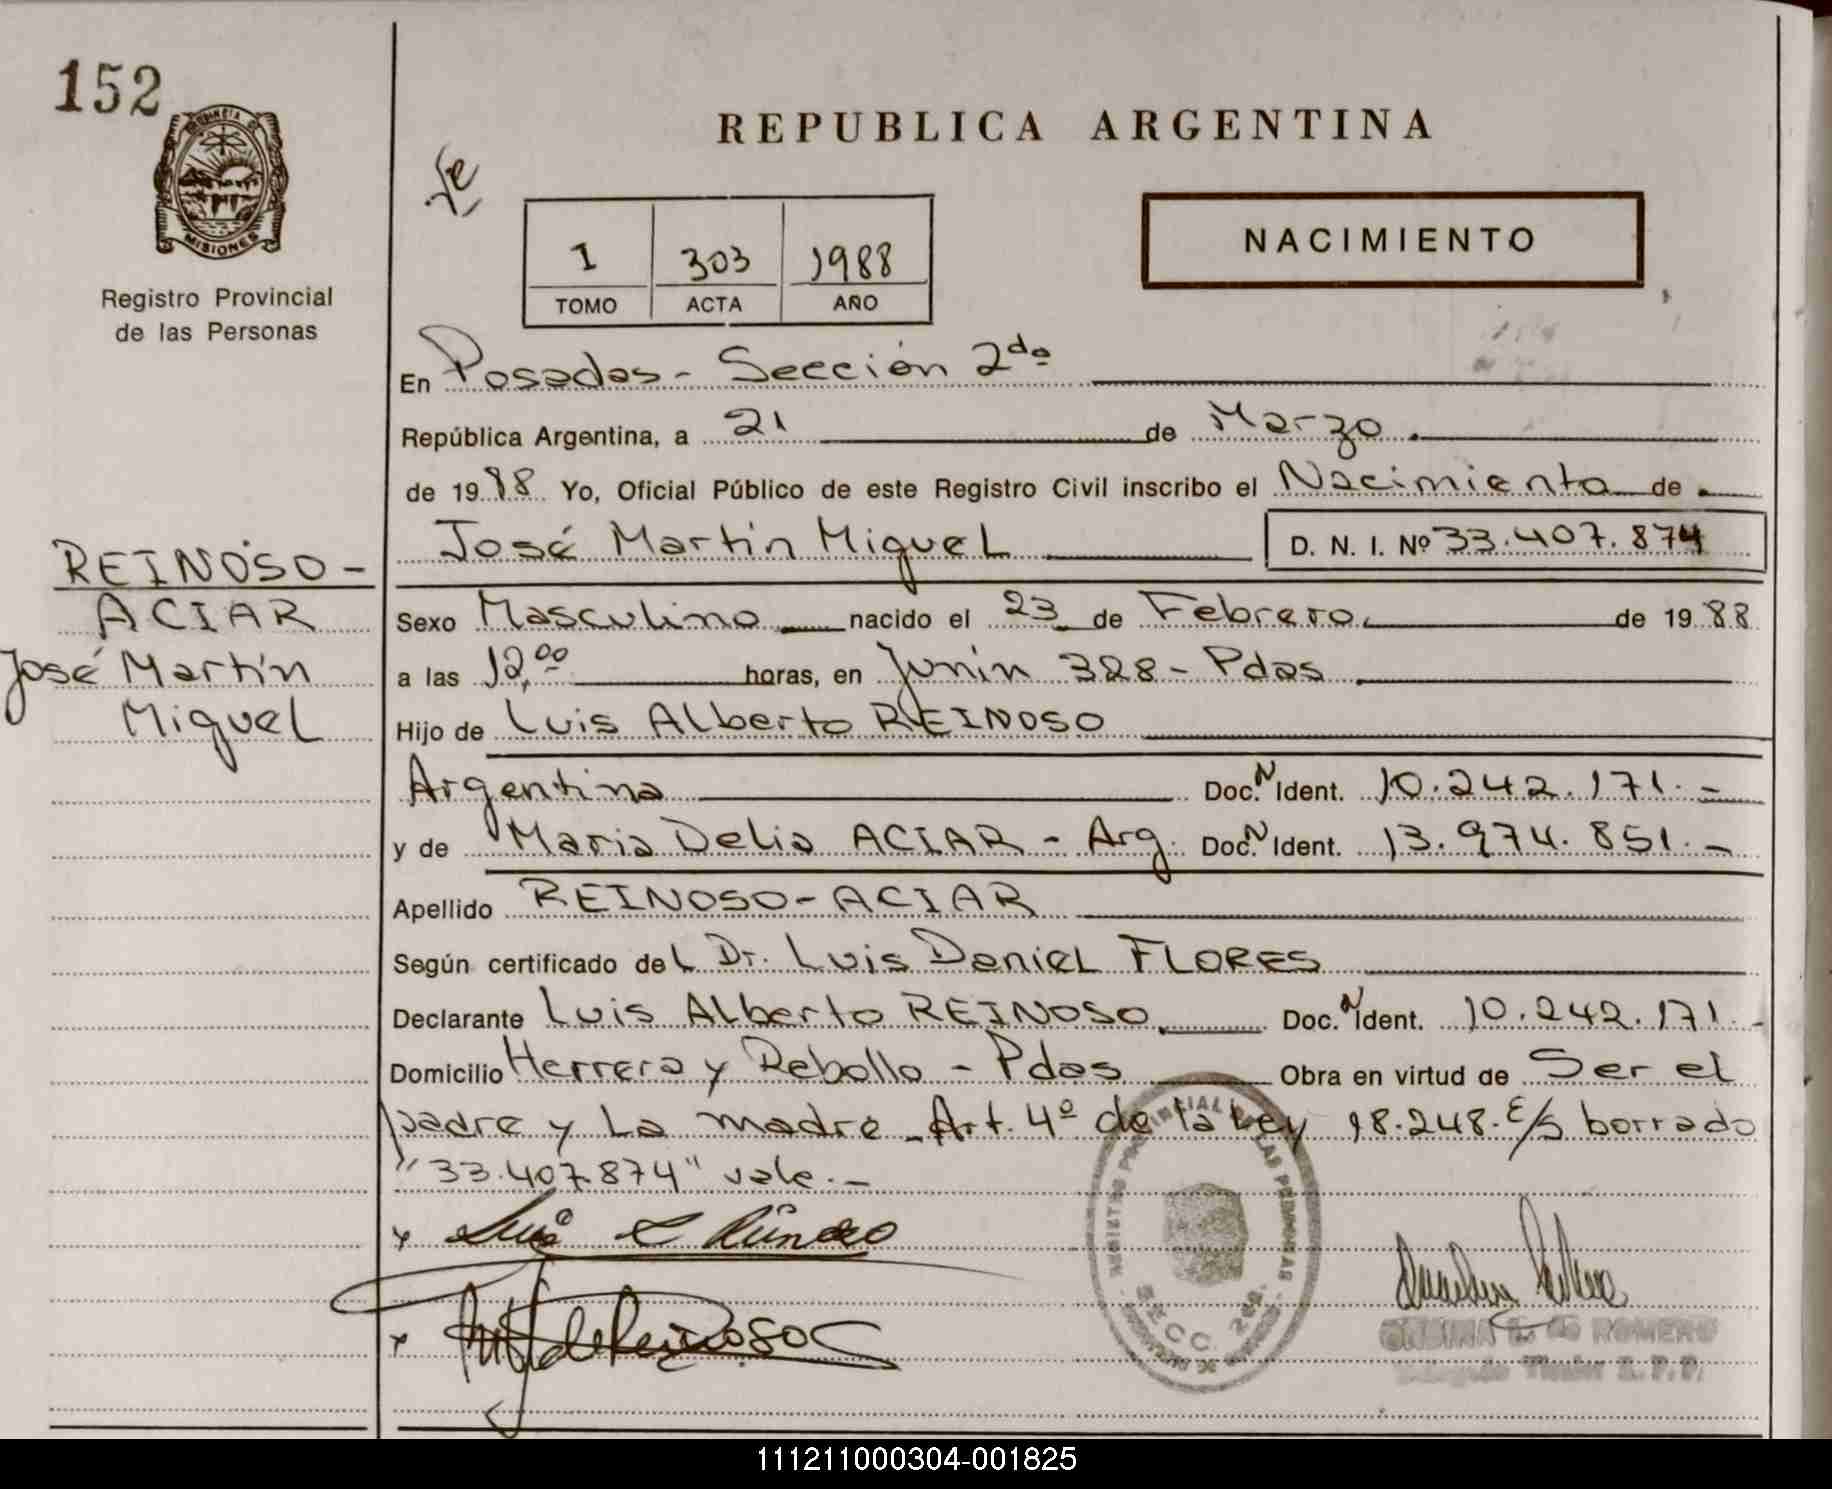 152
PROVINCIA DE
MISIONES
Registro Provincial
de las Personas
REPUBLICA ARGENTINA
1 303 1988
TOMO ACTA AÑO
NACIMIENTO
En Posadas - Sección 2da
República Argentina, a 21 de Marzo
de 1988 Yo, Oficial Público de este Registro Civil inscribo el Nacimiento de
José Martín Miguel D. N. I. Nº 33.407.874
REINOSO -
ACIAR
José Martín
Miguel
Sexo Masculino nacido el 23 de Febrero de 1988
a las 12,00 horas, en Junín 328 - Pdas
Hijo de Luis Alberto REINOSO
Argentina Doc. N Ident. 10.242.171.-
y de Maria Delia ACIAR - Arg. Doc. N Ident. 13.974.851.-
Apellido REINOSO-ACIAR
Según certificado del Dr. Luis Daniel FLORES
Declarante Luis Alberto REINOSO Doc. N Ident. 10.242.171.-
Domicilio Herrera y Rebollo - Pdas Obra en virtud de Ser el
padre y La madre - Art. 4º de la Ley 18.248. E/S borrado
"33.407.874" vale.-
REGISTRO PROVINCIAL DE LAS PERSONAS
SECC. 2da.
DE ROMERO
Titular R.P.P.
111211000304-001825